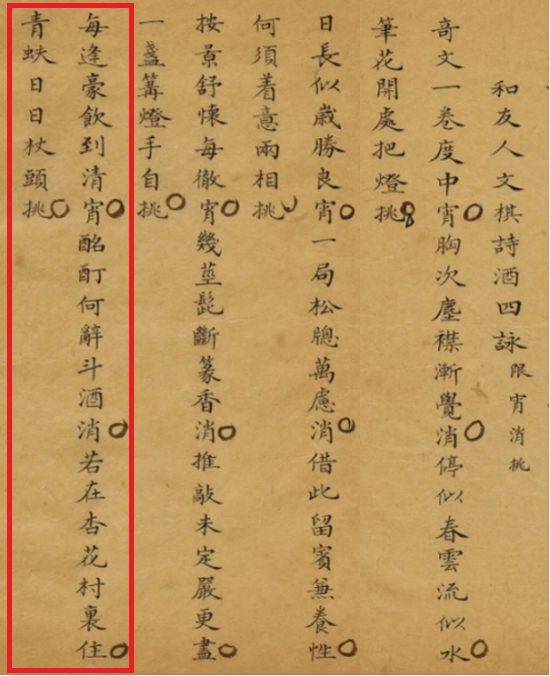 和友人文棋詩酒四詠限宵消挑
奇文一卷度中宵胸次塵襟漸覺消停似春雲流似水
筆花開處把燈挑
日長似歲勝良宵一局松牕萬慮消借此留賓兼養性
何須着意兩相挑
按景舒懷每徹宵幾莖髭斷篆香消推敲未定嚴更盡
一盞篝燈手自挑
每逢豪飲到清宵酩酊何辭斗酒消若在杏花村裏住
青蚨日日杖頭挑